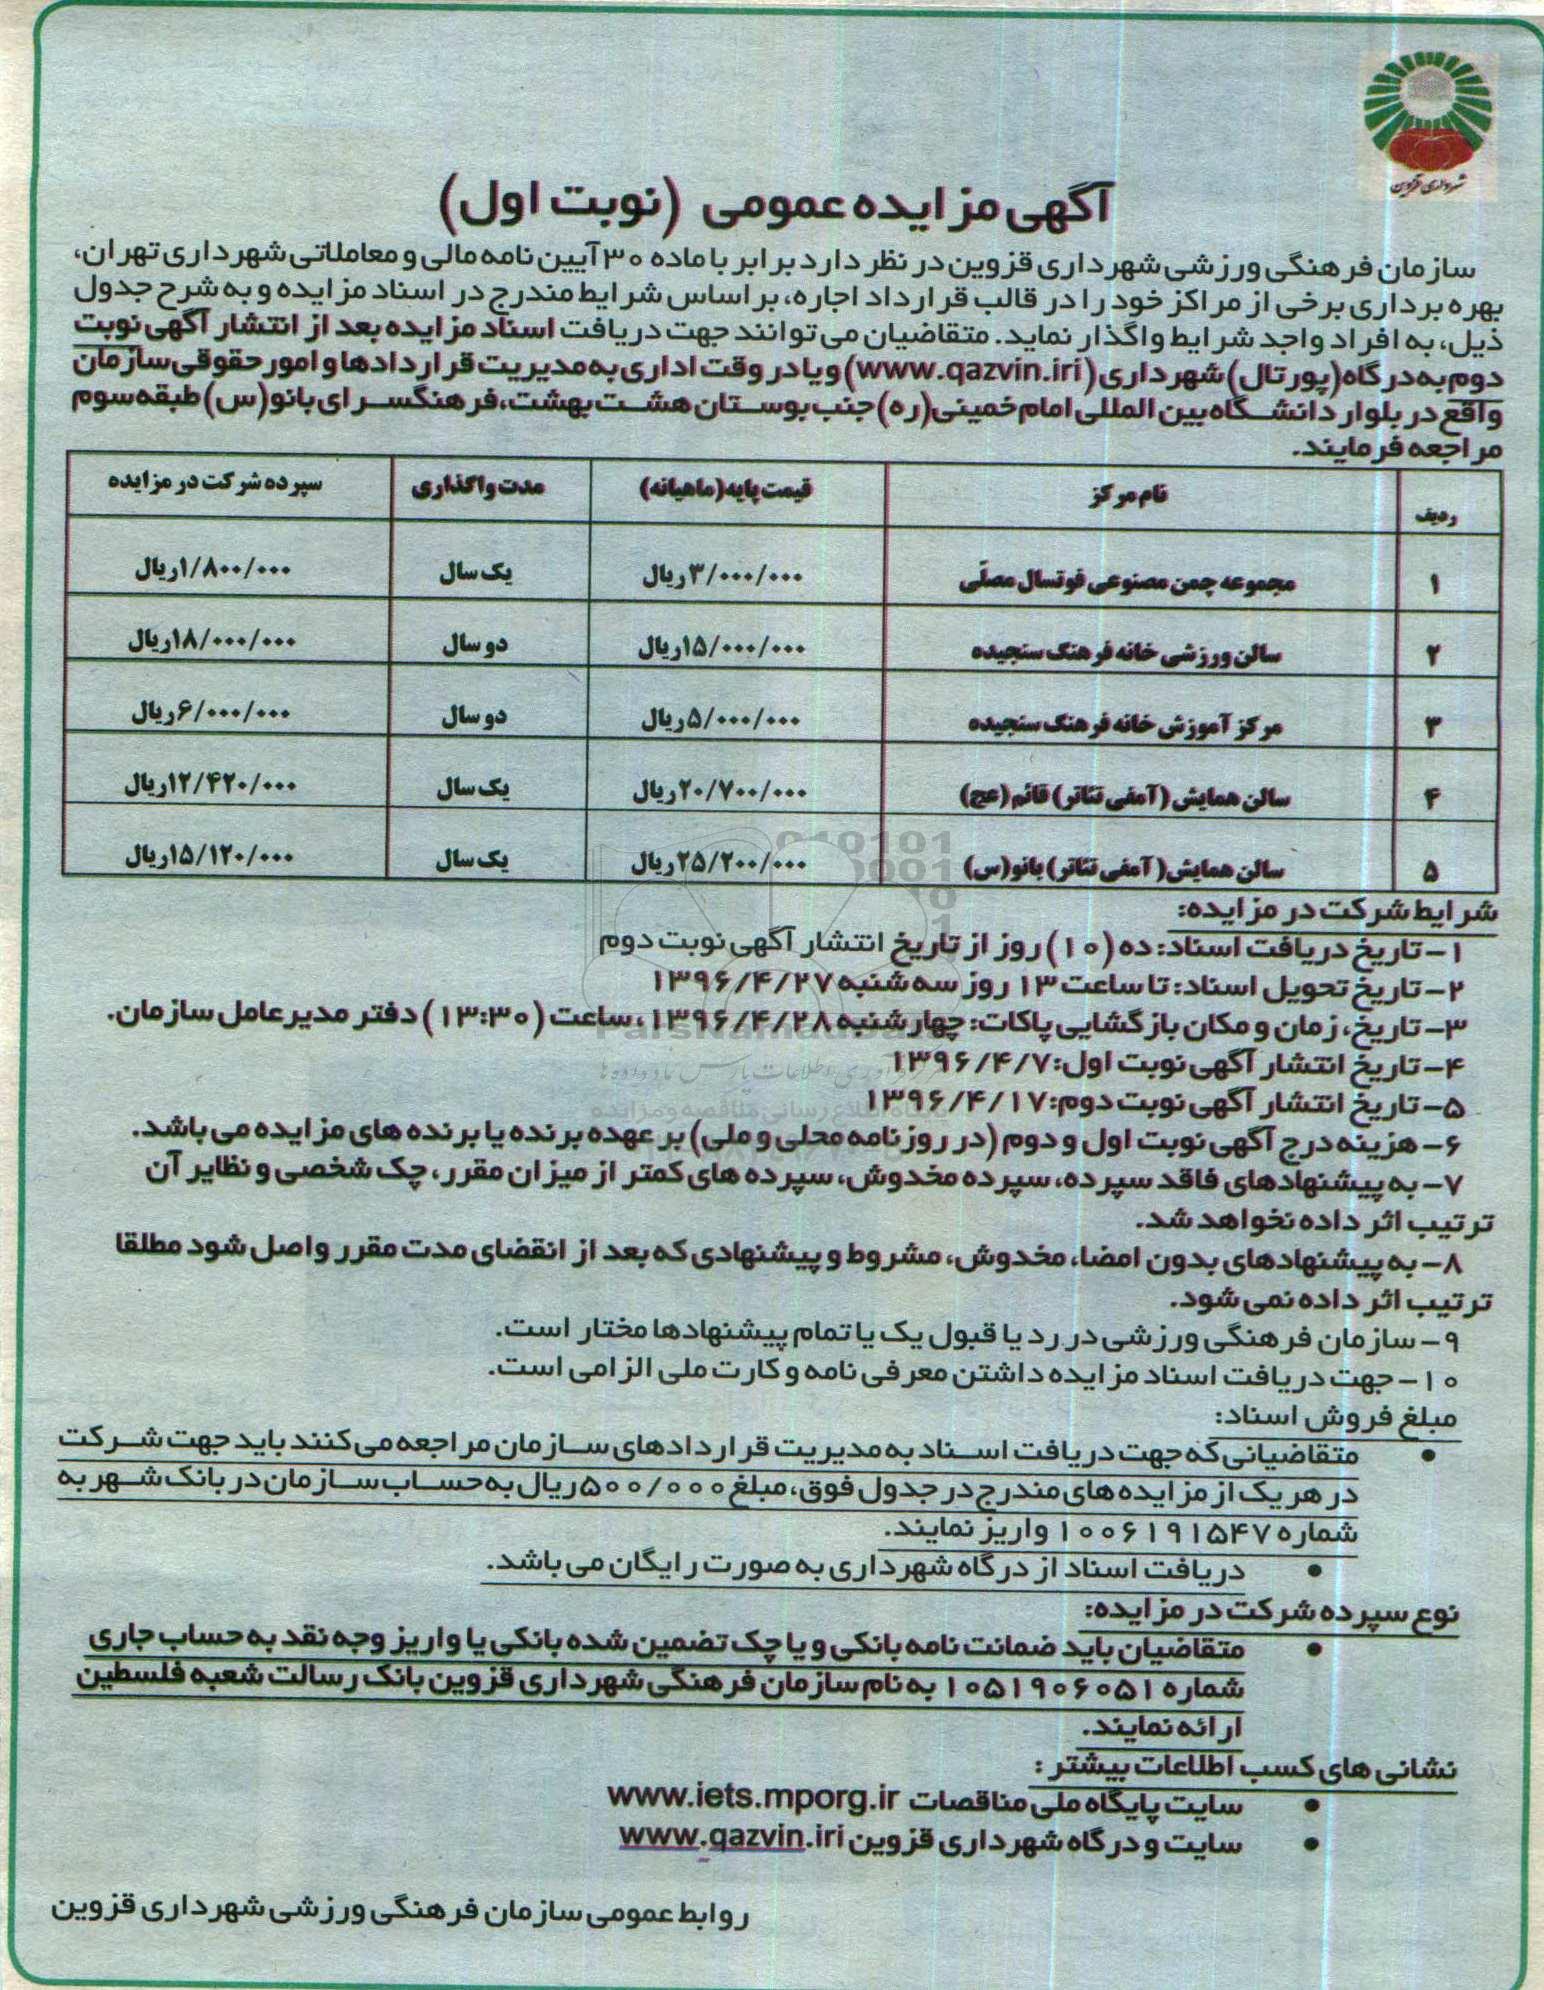 شهرداری قزوین
آگهی مزایده عمومی (نوبت اول)
سازمان فرهنگی ورزشی شهرداری قزوین در نظر دارد برابر با ماده ۳۰ آیین نامه مالی و معاملاتی شهرداری تهران،
بهره برداری برخی از مراکز خود را در قالب قرارداد اجاره، بر اساس شرایط مندرج در اسناد مزایده و به شرح جدول
ذیل، به افراد واجد شرایط واگذار نماید. متقاضیان می توانند جهت دریافت اسناد مزایده بعد از انتشار آگهی نوبت
دوم به درگاه (پورتال) شهرداری (www.qazvin.iri) و یا در وقت اداری به مدیریت قراردادها و امور حقوقی سازمان
واقع در بلوار دانشگاه بین المللی امام خمینی (ره) جنب بوستان هشت بهشت، فرهنگسرای بانو (س) طبقه سوم
مراجعه فرمایند.
ردیف | نام مرکز | قیمت پایه (ماهیانه) | مدت واگذاری | سپرده شرکت در مزایده
۱ | مجموعه چمن مصنوعی فوتسال مصلّی | ۳/۰۰۰/۰۰۰ ریال | یک سال | ۱/۸۰۰/۰۰۰ ریال
۲ | سالن ورزشی خانه فرهنگ سنجیده | ۱۵/۰۰۰/۰۰۰ ریال | دو سال | ۱۸/۰۰۰/۰۰۰ ریال
۳ | مرکز آموزش خانه فرهنگ سنجیده | ۵/۰۰۰/۰۰۰ ریال | دو سال | ۶/۰۰۰/۰۰۰ ریال
۴ | سالن همایش (آمفی تئاتر) قائم (عج) | ۲۰/۷۰۰/۰۰۰ ریال | یک سال | ۱۲/۴۲۰/۰۰۰ ریال
۵ | سالن همایش (آمفی تئاتر) بانو (س) | ۲۵/۲۰۰/۰۰۰ ریال | یک سال | ۱۵/۱۲۰/۰۰۰ ریال
شرایط شرکت در مزایده:
۱- تاریخ دریافت اسناد: ده (۱۰) روز از تاریخ انتشار آگهی نوبت دوم
۲- تاریخ تحویل اسناد: تا ساعت ۱۳ روز سه شنبه ۱۳۹۶/۴/۲۷
۳- تاریخ، زمان و مکان بازگشایی پاکات: چهارشنبه ۱۳۹۶/۴/۲۸، ساعت (۱۳:۳۰) دفتر مدیرعامل سازمان.
۴- تاریخ انتشار آگهی نوبت اول: ۱۳۹۶/۴/۷
۵- تاریخ انتشار آگهی نوبت دوم: ۱۳۹۶/۴/۱۷
۶- هزینه درج آگهی نوبت اول و دوم (در روزنامه محلی و ملی) بر عهده برنده یا برنده های مزایده می باشد.
۷- به پیشنهادهای فاقد سپرده، سپرده مخدوش، سپرده های کمتر از میزان مقرر، چک شخصی و نظایر آن
ترتیب اثر داده نخواهد شد.
۸- به پیشنهادهای بدون امضا، مخدوش، مشروط و پیشنهادی که بعد از انقضای مدت مقرر واصل شود مطلقا
ترتیب اثر داده نمی شود.
۹- سازمان فرهنگی ورزشی در رد یا قبول یک یا تمام پیشنهادها مختار است.
۱۰- جهت دریافت اسناد مزایده داشتن معرفی نامه و کارت ملی الزامی است.
مبلغ فروش اسناد:
• متقاضیانی که جهت دریافت اسناد به مدیریت قراردادهای سازمان مراجعه می کنند باید جهت شرکت
در هر یک از مزایده های مندرج در جدول فوق، مبلغ ۵۰۰/۰۰۰ ریال به حساب سازمان در بانک شهر به
شماره ۱۰۰۶۱۹۱۵۴۷ واریز نمایند.
• دریافت اسناد از درگاه شهرداری به صورت رایگان می باشد.
نوع سپرده شرکت در مزایده:
• متقاضیان باید ضمانت نامه بانکی و یا چک تضمین شده بانکی یا واریز وجه نقد به حساب جاری
شماره ۱۰۵۱۹۰۶۰۵۱ به نام سازمان فرهنگی شهرداری قزوین بانک رسالت شعبه فلسطین
ارائه نمایند.
نشانی های کسب اطلاعات بیشتر :
• سایت پایگاه ملی مناقصات www.iets.mporg.ir
• سایت و درگاه شهرداری قزوین www.qazvin.iri
روابط عمومی سازمان فرهنگی ورزشی شهرداری قزوین